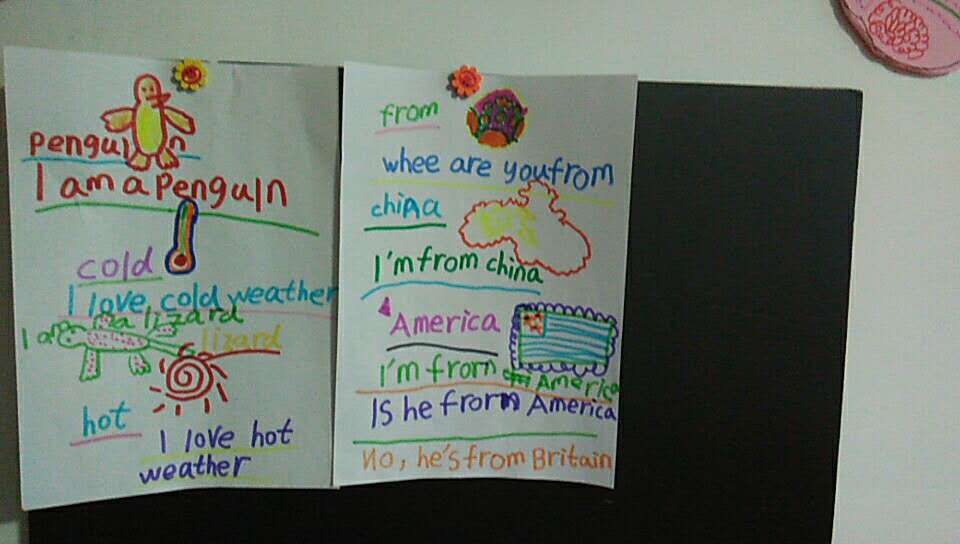 penguin
I am a penguin
cold
I love cold weather
I am a lizard
lizard
hot
I love hot
weather
from
whee are you from
china
I'm from china
America
I'm from America
Is he from America
No, he's from Britain